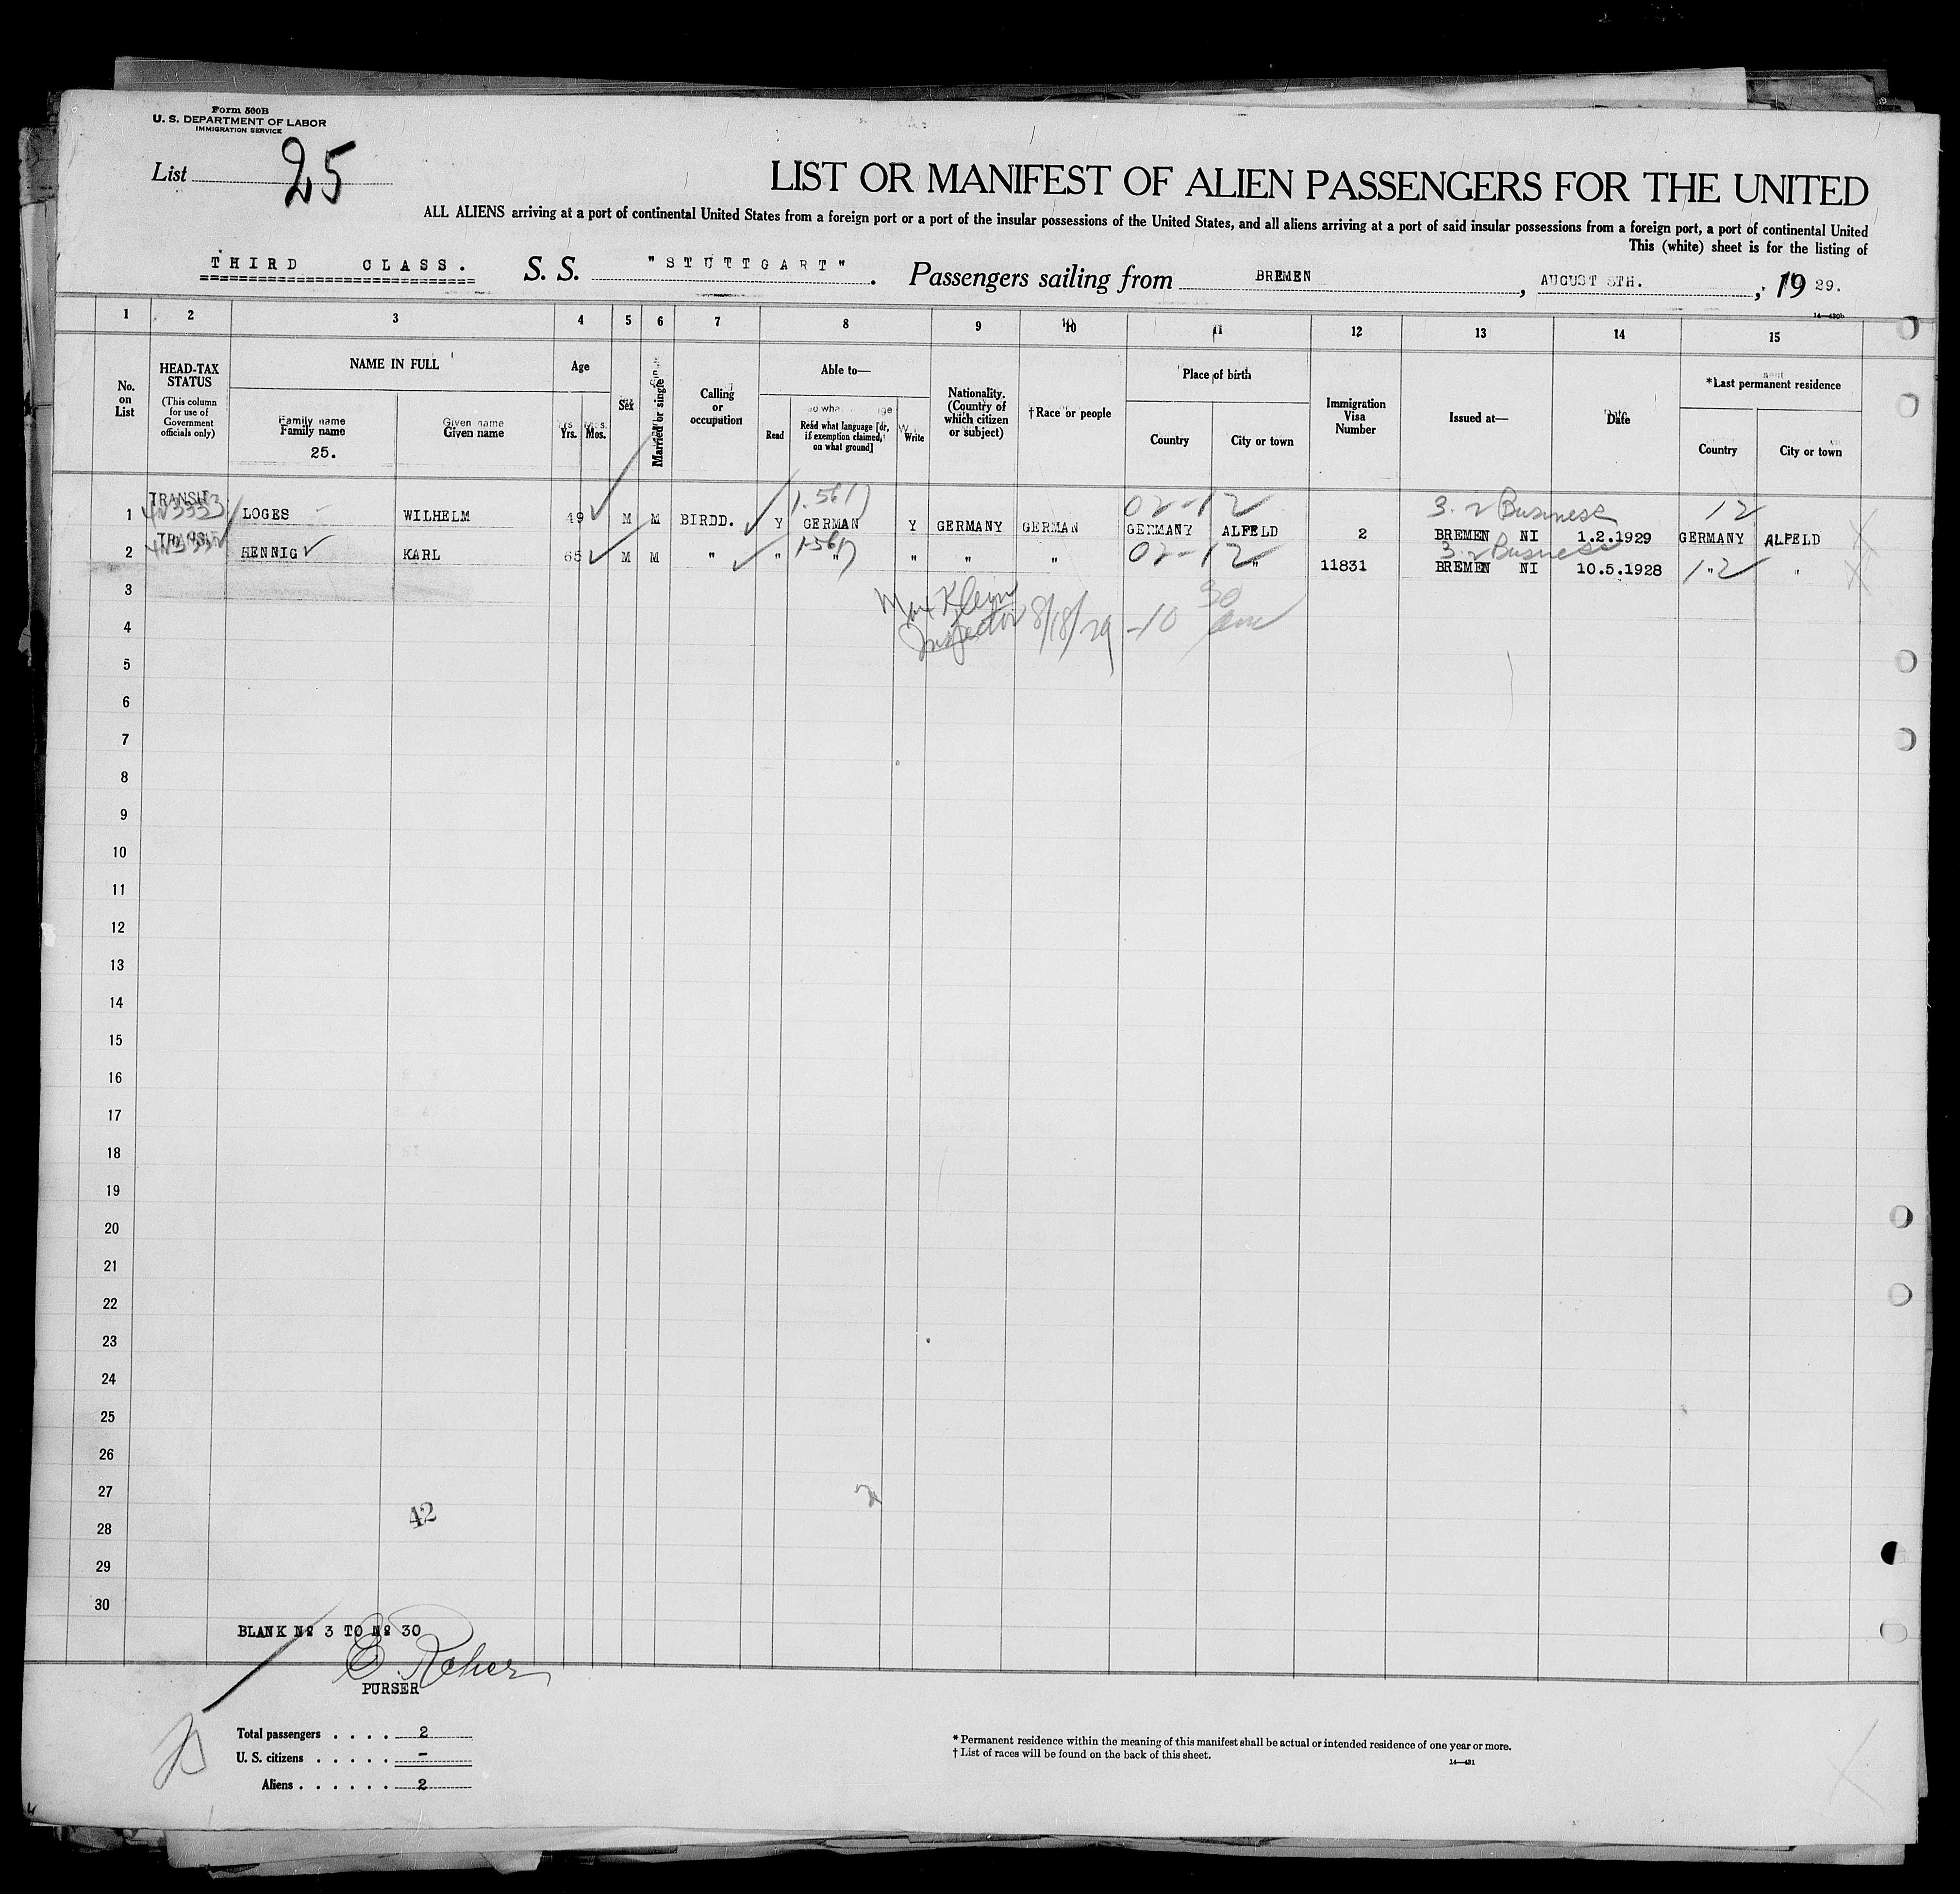 Form 500B
U. S. DEPARTMENT OF LABOR
IMMIGRATION SERVICE
List 25
LIST OR MANIFEST OF ALIEN PASSENGERS FOR THE UNITED
ALL ALIENS arriving at a port of continental United States from a foreign port or a port of the insular possessions of the United States, and all aliens arriving at a port of said insular possessions from a foreign port, a port of continental United
This (white) sheet is for the listing of
THIRD CLASS. S. S. "STUTTGART". Passengers sailing from BREMEN, AUGUST 8TH. , 19 29.
14—430b
1 2 3 4 5 6 7 8 9 10 11 12 13 14 15
No. on List
HEAD-TAX STATUS
(This column for use of Government officials only)
NAME IN FULL
Family name
Given name
25.
Age
Yrs. Mos.
Sex
Married or single
Calling or occupation
Able to—
Read
Read what language [or, if exemption claimed, on what ground]
Write
Nationality. (Country of which citizen or subject)
†Race or people
Place of birth
Country
City or town
Immigration Visa Number
Issued at—
Date
*Last permanent residence
Country
City or town
1 TRANSIT LOGES WILHELM 49 M M BIRDD. Y GERMAN Y GERMANY GERMAN GERMANY ALFELD 2 BREMEN NI 1.2.1929 GERMANY ALFELD
02-12 3.2 Business 12
2 TRANSIT HENNIG KARL 65 M M " " " " " " " 11831 BREMEN NI 10.5.1928 " "
02-12 3.2 Business 12
3
Max Klein
Inspector 8/18/29 -10 30 am
4
5
6
7
8
9
10
11
12
13
14
15
16
17
18
19
20
21
22
23
24
25
26
27
28
29
30
42
BLANK № 3 TO № 30
E. Reher
PURSER
Total passengers . . . . 2
U. S. citizens . . . . . -
Aliens . . . . . . 2
* Permanent residence within the meaning of this manifest shall be actual or intended residence of one year or more.
† List of races will be found on the back of this sheet.
14—431